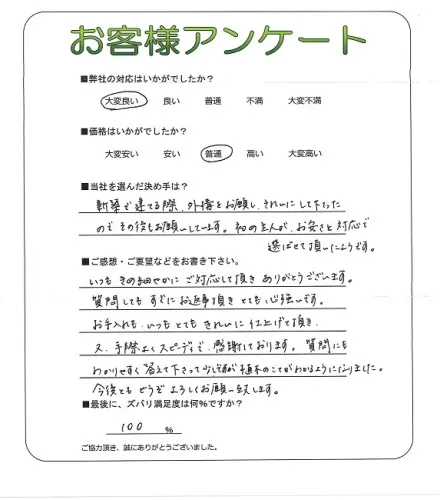 お客様アンケート
■弊社の対応はいかがでしたか?
大変良い 良い 普通 不満 大変不満
■価格はいかがでしたか?
大変安い 安い 普通 高い 大変高い
■当社を選んだ決め手は?
新築で建てる際、外構をお願いし、きれいにして下さった
のでその後もお願いしています。初め主人が、お安さと対応で
選ばせて頂いたようです。
■ご感想・ご要望などをお書き下さい。
いつもきめ細やかにご対応して頂きありがとうございます。
質問してもすぐにお返事頂きとても心強いです。
お手入れも、いつもとてもきれいに仕上げて頂き、
又、手際よくスピーディで、感謝しております。質問にも
わかりやすく答えて下さって少しずつが植木のことがわかるようになりました。
今後ともどうぞよろしくお願い致します。
■最後に、ズバリ満足度は何%ですか?
100 %
ご協力頂き、誠にありがとうございました。